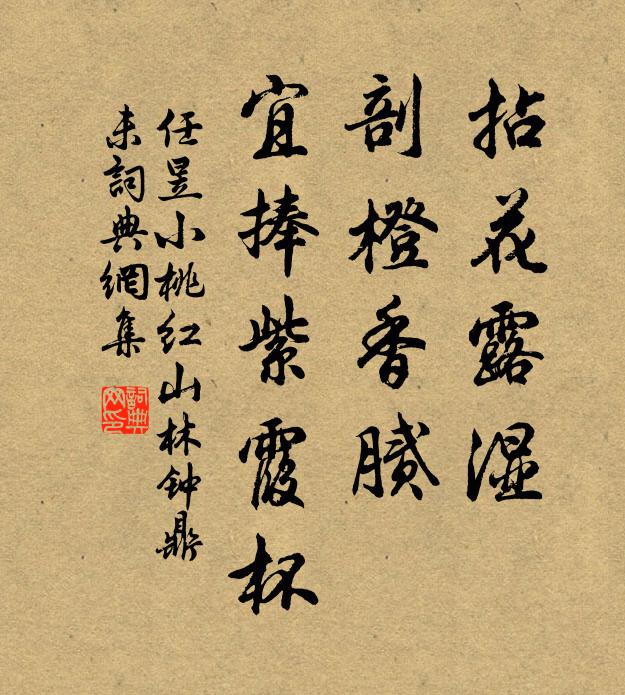 拈花露湿
剖橙香腻
宜捧紫霞杯
任昱小桃红山林钟鼎
未詞典網集
詞典
网印